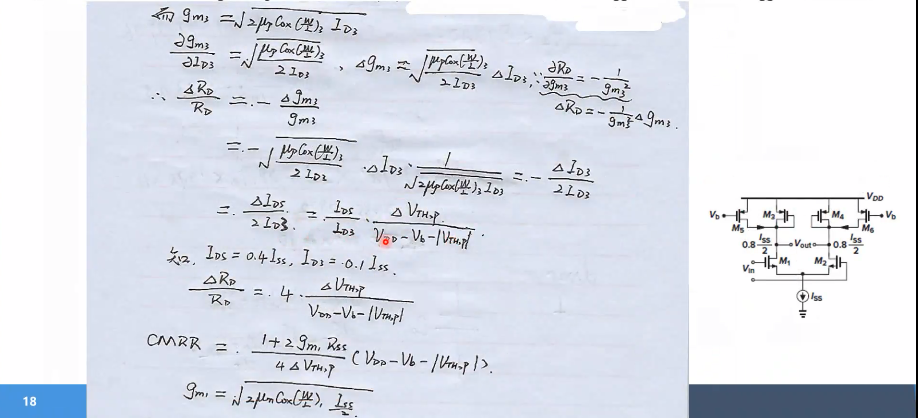 g_m3 = √(2μp Cox (W/L)_3 I_D3)
∂g_m3/∂I_D3 = √(μp Cox (W/L)_3 / 2I_D3) , Δg_m3 = √(μp Cox (W/L)_3 / 2I_D3) ΔI_D3 , ∵ ∂R_D/∂g_m3 = - 1/g_m3²
∴ ΔR_D/R_D = - Δg_m3/g_m3
ΔR_D = - 1/g_m3² Δg_m3 .
= - √(μp Cox (W/L)_3 / 2I_D3) · ΔI_D3 · 1/√(2μp Cox (W/L)_3 I_D3) = - ΔI_D3/2I_D3
= ΔI_D5/2I_D3 = I_D5/I_D3 · ΔV_TH,p / (V_DD - V_b - |V_TH,p|) .
I_D5 = 0.4 I_SS , I_D3 = 0.1 I_SS .
ΔR_D/R_D = 4 · ΔV_TH,p / (V_DD - V_b - |V_TH,p|)
CMRR = (1 + 2g_m1 R_SS) / 4ΔV_TH,p (V_DD - V_b - |V_TH,p|) .
g_m1 = √(2μn Cox (W/L)_1 I_SS/2) .
V_DD
V_b M_3 M_4 V_b
M_5 M_6
0.8 I_SS/2 V_out 0.8 I_SS/2
V_in M_1 M_2
I_SS
18